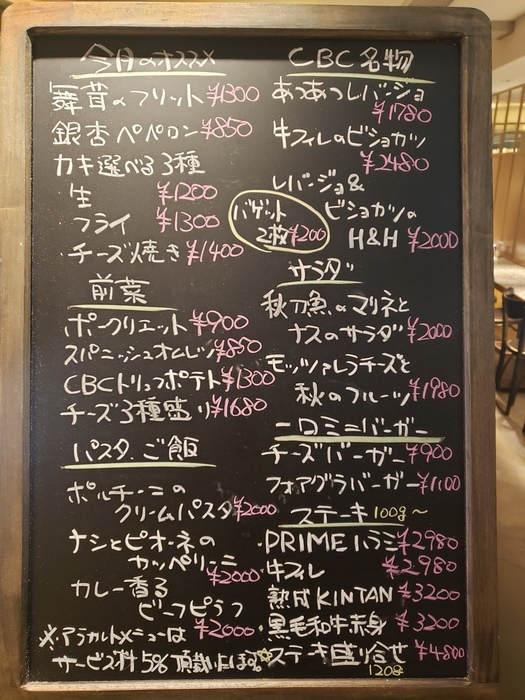 今月のオススメ
舞茸のフリット ¥1300
銀杏ペペロン ¥850
カキ選べる3種
生 ¥1200
フライ ¥1300
チーズ焼き ¥1400
前菜
ポークリエット ¥900
スパニッシュオムレツ ¥850
CBCトリュフポテト ¥1300
チーズ3種盛り ¥1680
パスタ、ご飯
ポルチーニの
クリームパスタ ¥2000
ナシとピオーネの
カッペリーニ
¥2000
カレー香る
ビーフピラフ
¥2000
※アラカルトメニューは
サービス料5%頂戴
CBC名物
あつあつレバージョ
¥1780
牛フィレのビショカツ
¥2480
レバージョ&
ビショカツの
H&H ¥2000
バゲット
2枚 ¥200
サラダ
秋刀魚のマリネと
ナスのサラダ ¥2000
モッツァレラチーズと
秋のフルーツ ¥1980
一口ミニバーガー
チーズバーガー ¥900
フォアグラバーガー ¥1100
ステーキ 100g〜
PRIMEハラミ ¥2980
牛フィレ ¥2980
熟成KINTAN ¥3200
黒毛和牛赤身 ¥3200
☆ステーキ盛り合せ ¥4800
120g